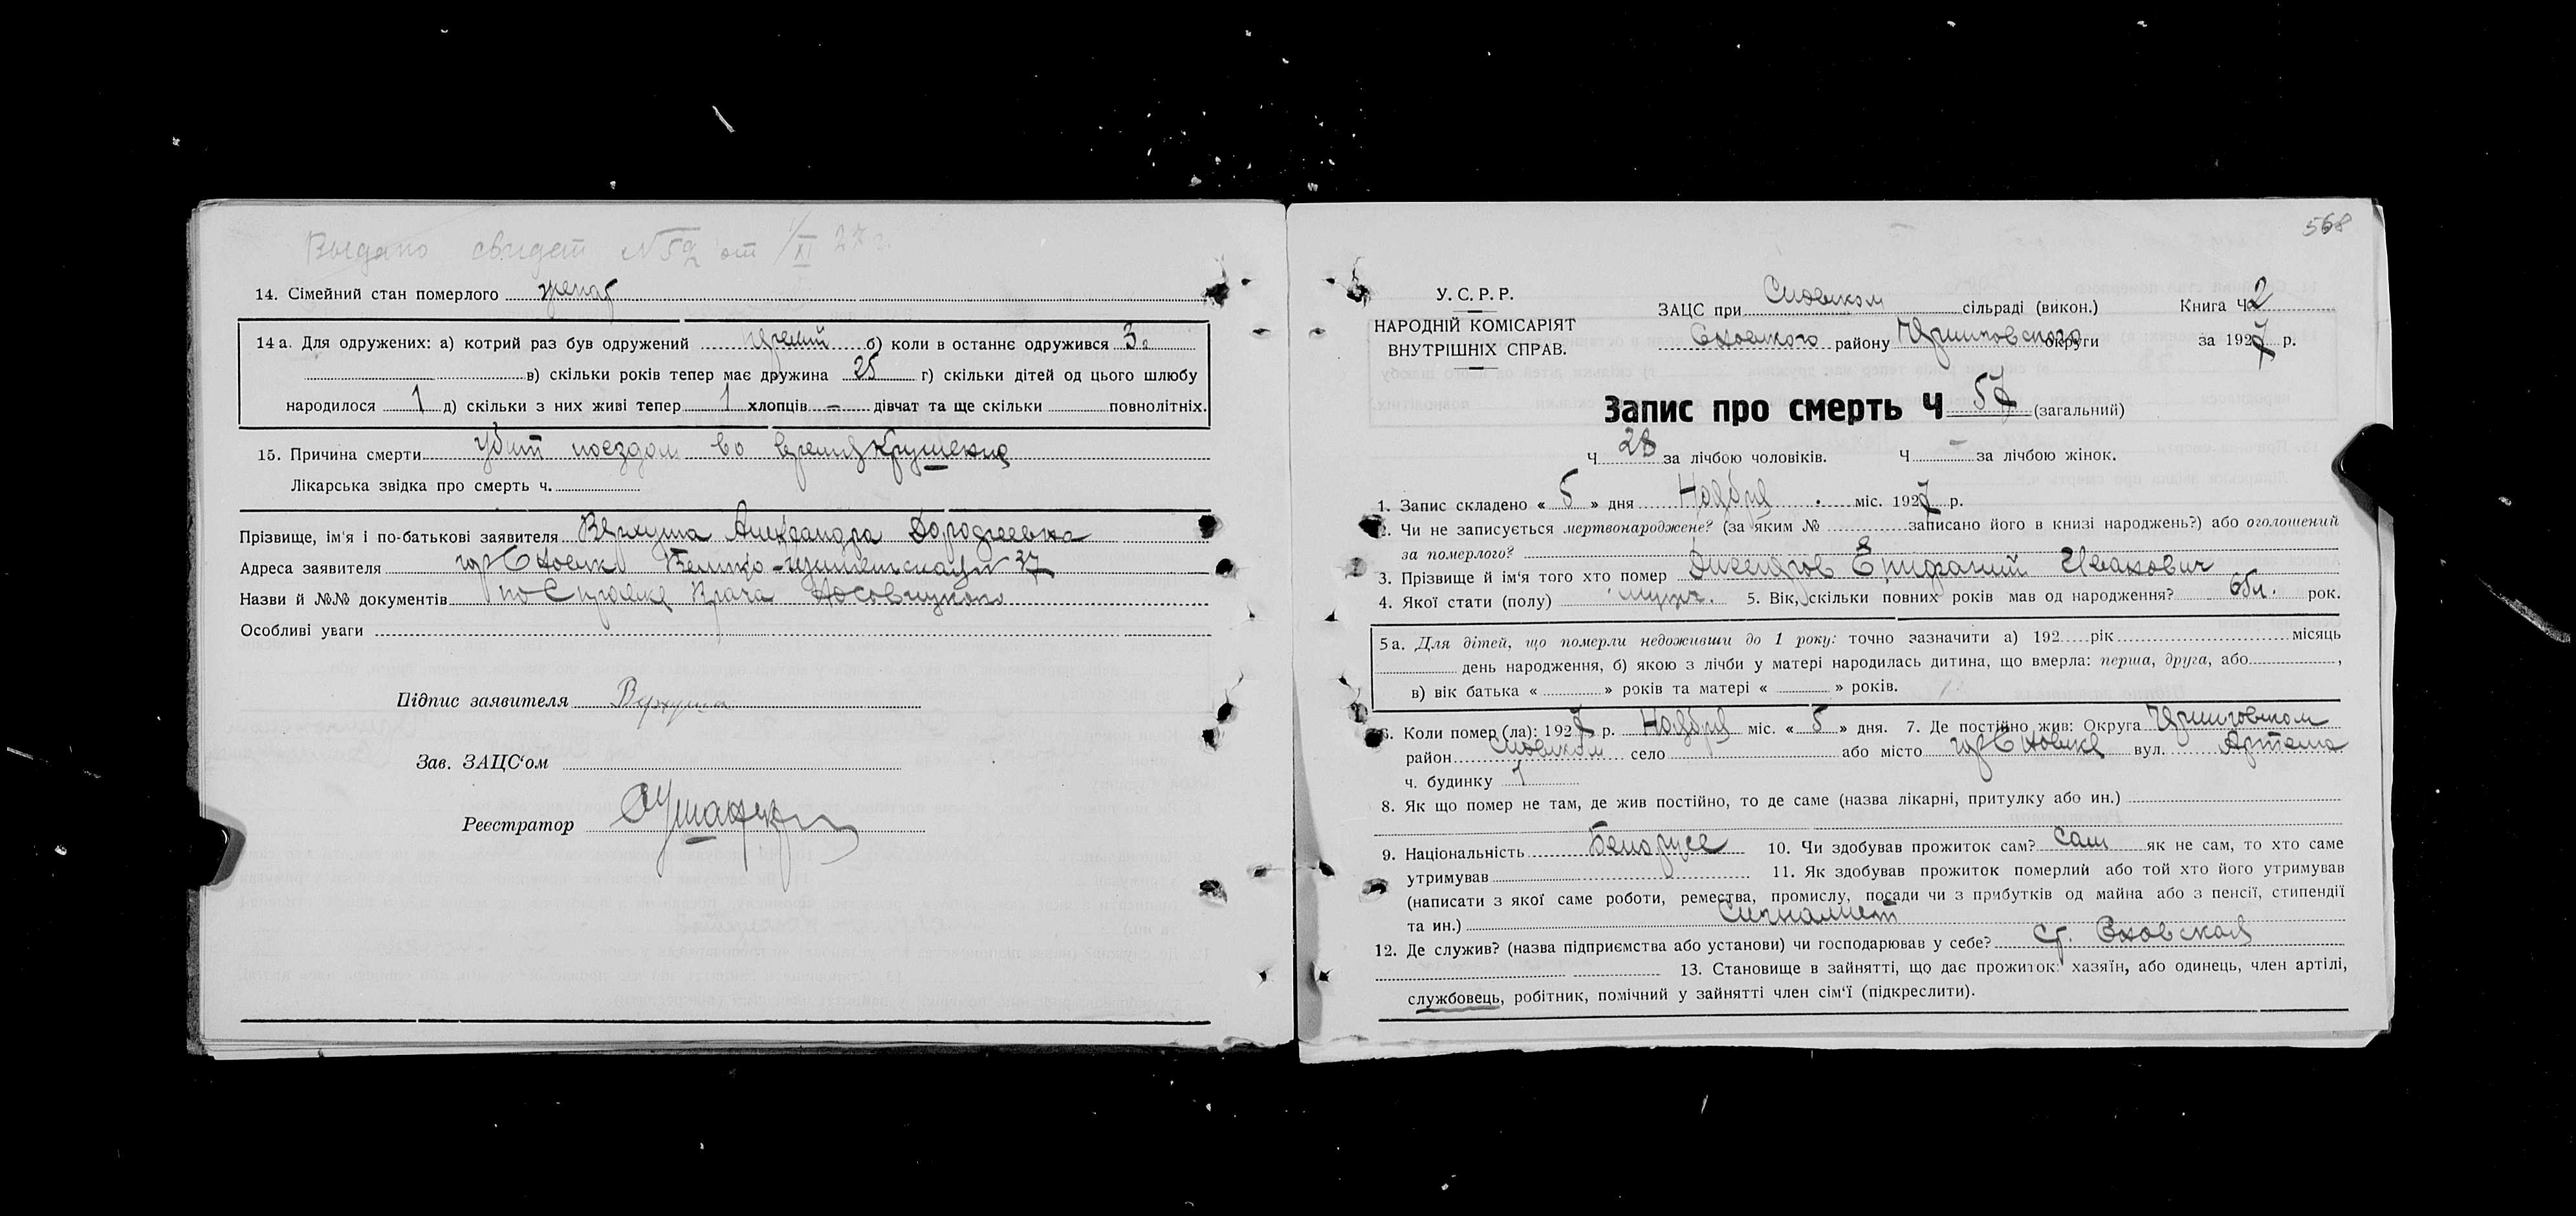 Выдано свидет №52 от 1/XI 27 г.
14. Сімейний стан померлого женат
14 а. Для одружених: а) котрий раз був одружений первый б) коли в останнє одружився 3 г
в) скільки років тепер має дружина 25 г) скільки дітей од цього шлюбу
народилося 1 д) скільки з них живі тепер 1 хлопців – дівчат та ще скільки повнолітніх.
15. Причина смерти убит поездом во время крушения
Лікарська звідка про смерть ч.
Прізвище, ім'я і по-батькові заявителя Верхуша Александра
Адреса заявителя гор Сновск 37
Назви й №№ документів по Справке Врача
Особливі уваги
Підпис заявителя Верхуша
Зав. ЗАЦС'ом
Реєстратор
568
У. С. Р. Р.
НАРОДНІЙ КОМІСАРІЯТ
ВНУТРІШНІХ СПРАВ.
ЗАЦС при Сновском сільраді (викон.) Книга Ч 2
Сновского району Черниговского округи за 1927 р.
Запис про смерть Ч 57 (загальний)
Ч 28 за лічбою чоловіків. Ч – за лічбою жінок.
1. Запис складено « 5 » дня Ноября міс. 1927 р.
2. Чи не записується мертвонароджене? (за яким № записано його в книзі народжень?) або оголошений
за померлого?
3. Прізвище й ім'я того хто помер Епифаний Иванович
4. Якої стати (полу) мужч. 5. Вік, скільки повних років мав од народження? рок.
5 а. Для дітей, що померли недоживши до 1 року: точно зазначити а) 192 рік місяць
день народження, б) якою з лічби у матері народилась дитина, що вмерла: перша, друга, або ,
в) вік батька « » років та матері « » років.
6. Коли помер (ла): 1927 р. Ноября міс. « 5 » дня. 7. Де постійно жив: Округа Черниговском
район Сновском село або місто гор Сновске вул. Артема
ч. будинку 1
8. Як що помер не там, де жив постійно, то де саме (назва лікарні, притулку або ин.)
9. Національність Белорусс 10. Чи здобував прожиток сам? сам як не сам, то хто саме
утримував 11. Як здобував прожиток померлий або той хто його утримував
(написати з якої саме роботи, ремества, промислу, посади чи з прибутків од майна або з пенсії, стипендії
та ин.) Сигналист
12. Де служив? (назва підприємства або установи) чи господарював у себе? ст. Сновская
13. Становище в зайнятті, що дає прожиток: хазяїн, або одинець, член артілі,
службовець, робітник, помічний у зайнятті член сім'ї (підкреслити).